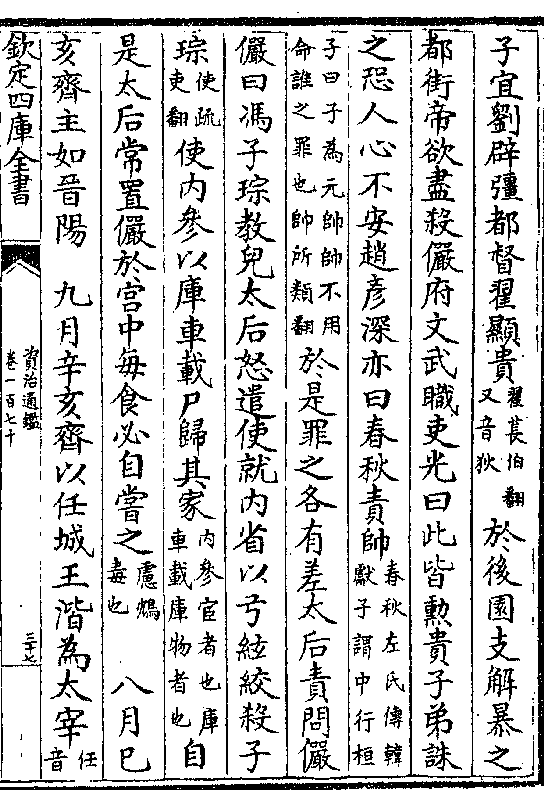 子宜劉辟彊都督翟顯貴翟萇伯翻又音狄於後園支解暴之
都街帝欲盡殺儼府文武職吏光曰此皆勲貴子弟誅
之恐人心不安趙彦深亦曰春秋責帥春秋左氏傳韓獻子謂中行桓
子曰子為元帥師不用命誰之罪也帥所類翻於是罪之各有差太后責問儼
儼曰馮子琮教兒太后怒遣使就内省以弓絃絞殺子
琮使疏吏翻使内參以庫車載尸歸其家内參宦者也庫車載庫物者也自
是太后常置儼於宫中每食必自嘗之慮鴆毒也八月己
亥齊主如晉陽 九月辛亥齊以任城王湝為太宰任音
欽定四庫全書
資治通鑑
卷一百七十
三十七